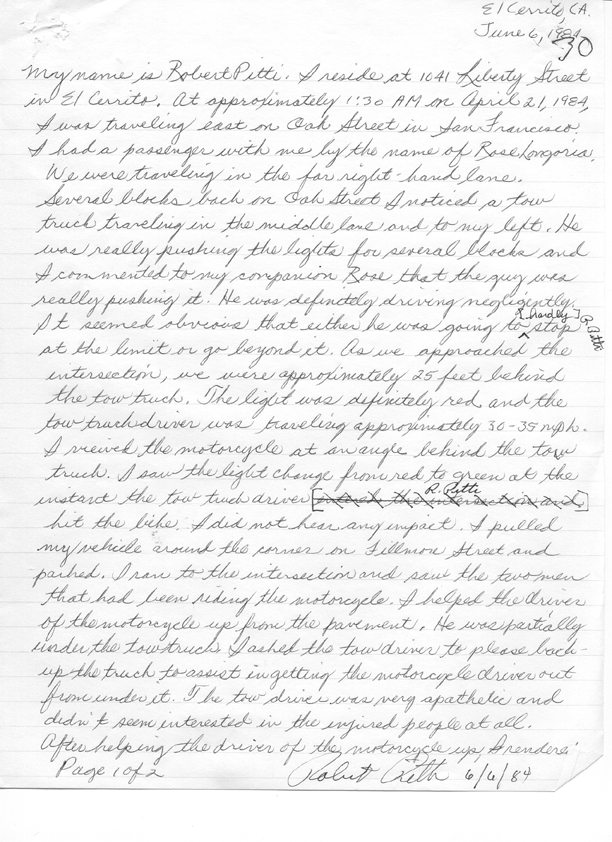 El Cerrito, CA.
June 6, 1984
30
My name is Robert Pitti. I reside at 1041 Liberty Street
in El Cerrito. At approximately 1:30 AM on April 21, 1984,
I was traveling east on Oak Street in San Francisco.
I had a passenger with me by the name of Rose Longoria.
We were traveling in the far right-hand lane.
Several blocks back on Oak Street I noticed a tow
truck traveling in the middle lane and to my left. He
was really pushing the lights for several blocks and
I commented to my companion Rose that the guy was
really pushing it. He was definitely driving negligently.
[hardly] R. Pitti
It seemed obvious that either he was going to stop
at the limit or go beyond it. As we approached the
intersection, we were approximately 25 feet behind
the tow truck. The light was definitely red and the
tow truck driver was traveling approximately 30-35 mph.
I viewed the motorcycle at an angle behind the tow
truck. I saw the light change from red to green at the
R. Pitti
instant the tow truck driver [entered the intersection and]
hit the bike. I did not hear any impact. I pulled
my vehicle around the corner on Fillmore Street and
parked. I ran to the intersection and saw the two men
that had been riding the motorcycle. I helped the driver
of the motorcycle up from the pavement. He was partially
under the tow truck. I asked the tow driver to please back-
up the truck to assist in getting the motorcycle driver out
from under it. The tow driver was very apathetic and
didn't seem interested in the injured people at all.
After helping the driver of the motorcycle up, I rendere
Page 1 of 2 Robert Pitti 6/6/84